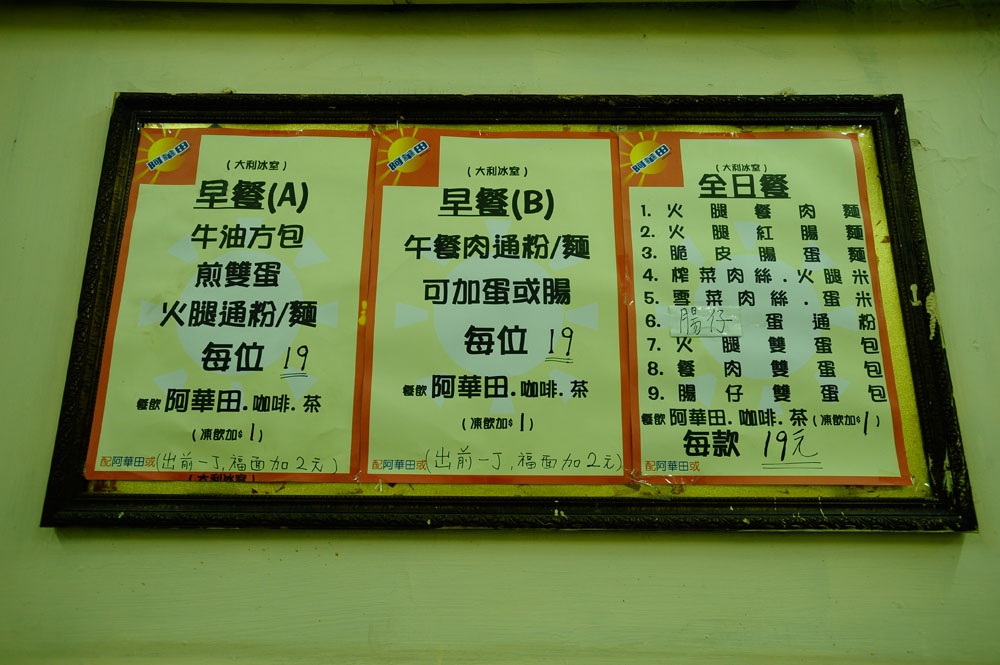 阿華田
(大利冰室)
早餐(A)
牛油方包
煎雙蛋
火腿通粉/麵
每位 19
餐飲 阿華田.咖啡.茶
(凍飲加$1)
配阿華田或(出前一丁,福面加2元)
(大利冰室)
阿華田
(大利冰室)
早餐(B)
午餐肉通粉/麵
可加蛋或腸
每位 19
餐飲 阿華田.咖啡.茶
(凍飲加$1)
配阿華田或(出前一丁,福面加2元)
阿華田
(大利冰室)
全日餐
1. 火腿餐肉麵
2. 火腿紅腸麵
3. 脆皮腸蛋麵
4. 榨菜肉絲.火腿米
5. 雪菜肉絲.蛋米
6. 腸仔蛋通粉
7. 火腿雙蛋包
8. 餐肉雙蛋包
9. 腸仔雙蛋包
餐飲 阿華田.咖啡.茶(凍飲加$1)
每款 19元
配阿華田或